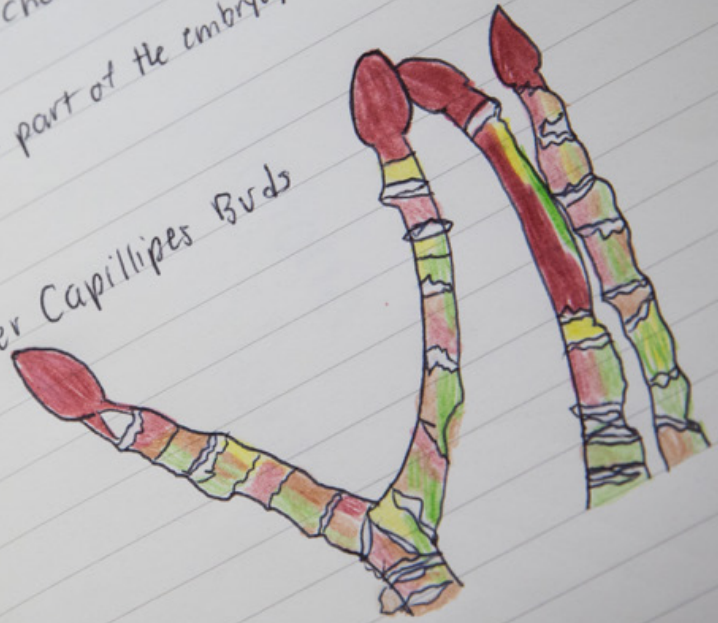 part of the embryo,
er Capillipes Buds